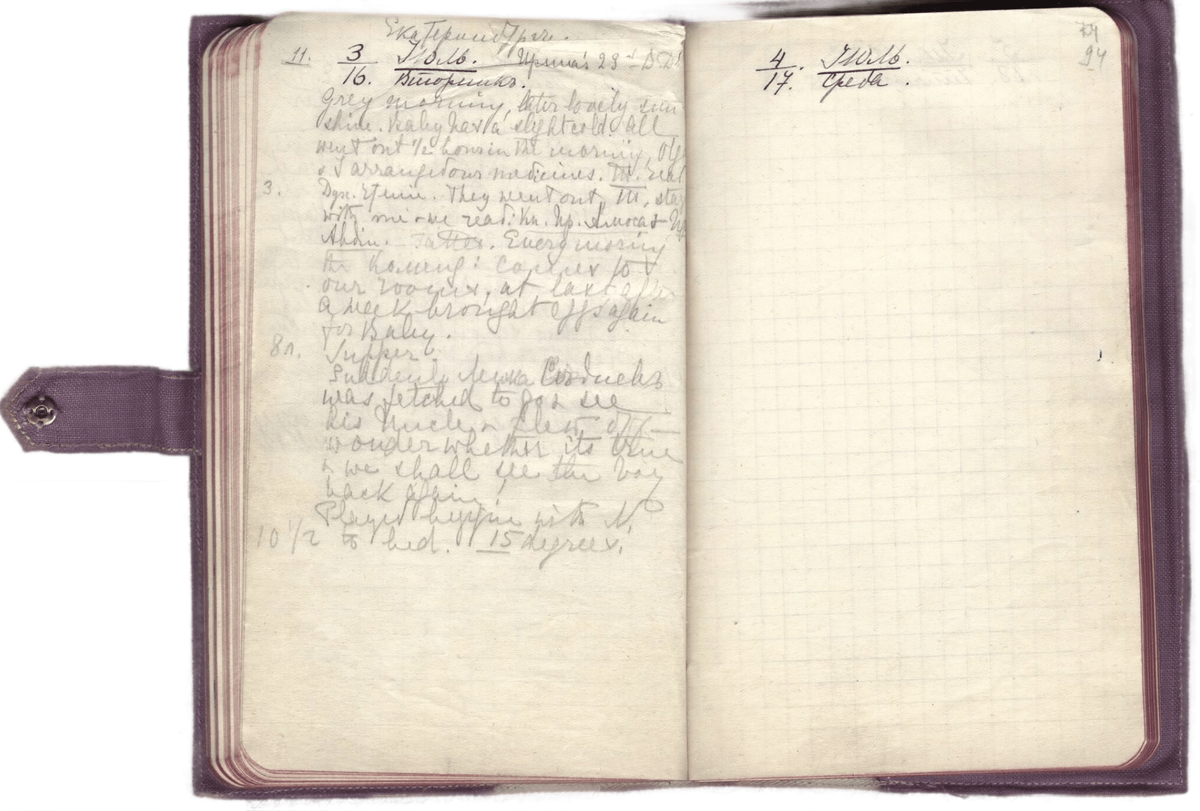 Екатеринбург.
11. 3 Іюль. Ирина's 23d B.D.
16. Вторникъ.
Grey morning, later lovely sun
shine. Baby has a slight cold. All
went out ½ hour in the morning, Olga
& I arranged our medicines. T. read
3. Дух. Чтеніе. They went out, T. stayed
with me & we read: Кн. Пр. Амоса & Пр.
Авдія. Tatted. Every morning
the Коменд: comes to
our rooms, at last after
a week brought eggs again
for Baby.
8 Supper.
Suddenly Лешка Седневъ
was fetched to go & see
his Uncle & flew off –
wonder whether its true
& we shall see the boy
back again!
Played bezique with N.
10 ½ to bed. 15 degrees.
4. Іюль.
17. Среда.
94